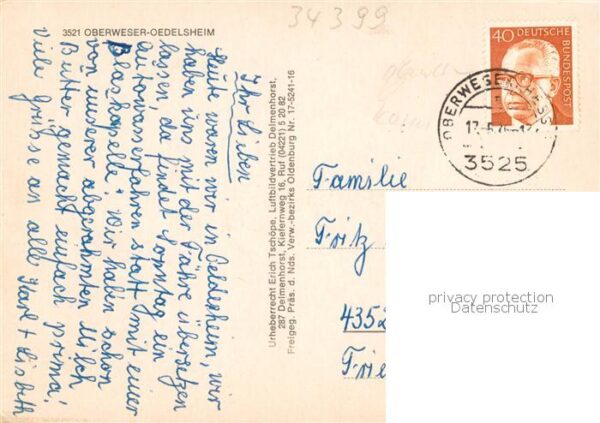 34399
3521 OBERWESER-OEDELSHEIM
Ihr Lieben
Heute waren wir in Oedelsheim, wir
haben uns mit der Fähre übersetzen
lassen, da findet Sonntag ein
autowasserfahren statt (mit einer
Blaskapelle + wir haben schon
von unserer abgerahmten Milch
Butter gemacht einfach prima!
Viele Grüsse an alle Karl + Lisbeth
Urheberrecht Erich Tschöpe, Luftbildvertrieb Delmenhorst,
287 Delmenhorst, Kiefernweg 16, Ruf (04221) 5 20 82
Freigeg. Präs. d. Nds. Verw.-bezirks Oldenburg Nr. 17-5241-16
40 DEUTSCHE
BUNDESPOST
OBERWESER
3525
Familie
Fritz
4352
privacy protection
Datenschutz